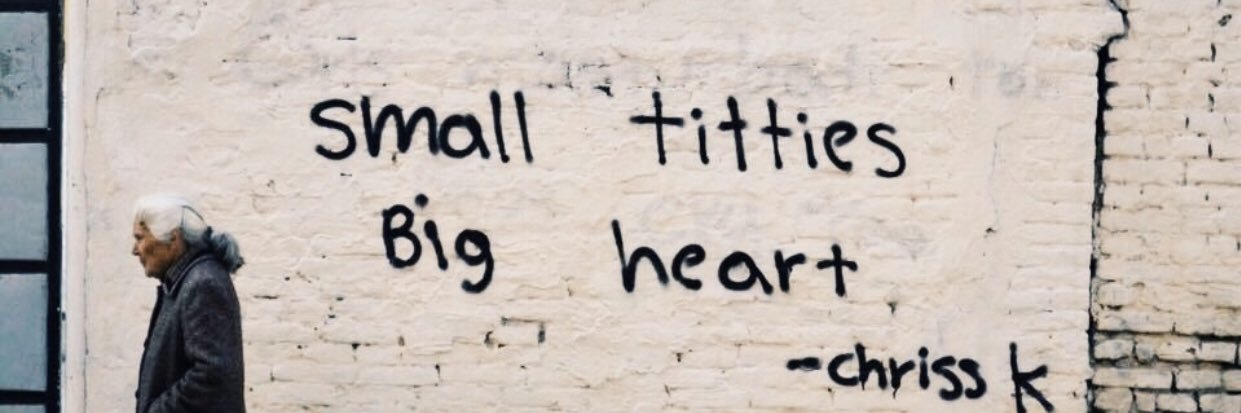 small titties
Big heart
-chriss k